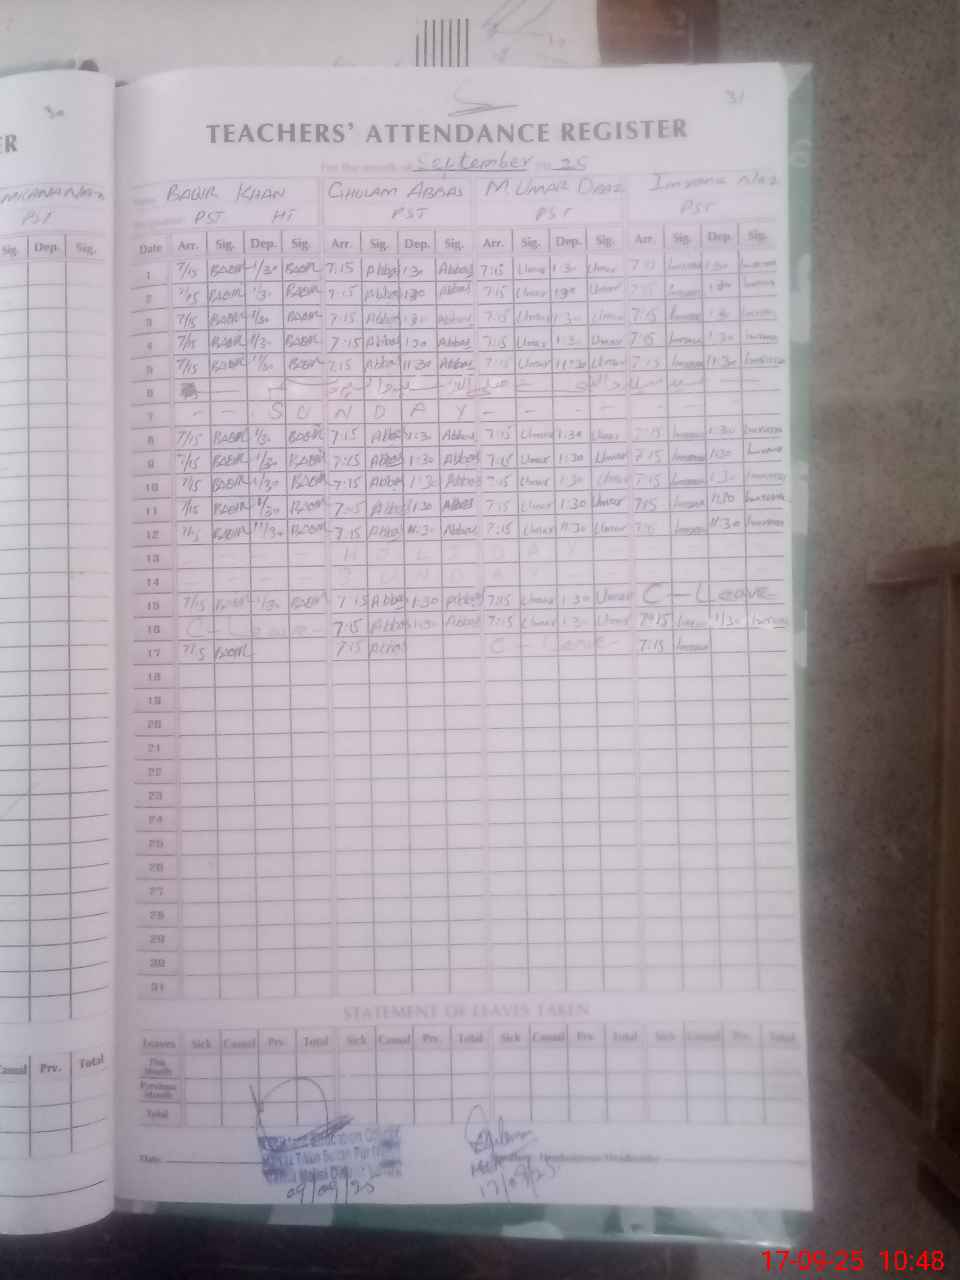 30
31
TEACHERS' ATTENDANCE REGISTER
For the month of September 25
BABUR KHAN GHULAM ABBAS M. UMAR DRAZ Imrana Naz
PST HT PST PST PST
Sig. Dep. Sig. Date Arr. Sig. Dep. Sig. Arr. Sig. Dep. Sig. Arr. Sig. Dep. Sig. Arr. Sig. Dep. Sig.
1 7/15 BABUR 1/30 BABUR 7:15 Abbas 1:30 Abbas 7:15 Umar 1:30 Umar 7:15 Imrana 1:30 Imrana
2 7/15 BABUR 1/30 BABUR 7:15 Abbas 1:30 Abbas 7:15 Umar 1:30 Umar 7:15 Imrana 1:30 Imrana
3 7/15 BABUR 1/30 BABUR 7:15 Abbas 1:30 Abbas 7:15 Umar 1:30 Umar 7:15 Imrana 1:30 Imrana
4 7/15 BABUR 1/30 BABUR 7:15 Abbas 1:30 Abbas 7:15 Umar 1:30 Umar 7:15 Imrana 1:30 Imrana
5 7/15 BABUR 11/30 BABUR 7:15 Abbas 11:30 Abbas 7:15 Umar 11:30 Umar 7:15 Imrana 11:30 Imrana
6
7 - - S U N D A Y - - - - - -
8 7/15 BABUR 1/30 BABUR 7:15 Abbas 1:30 Abbas 7:15 Umar 1:30 Umar 7:15 Imrana 1:30 Imrana
9 7/15 BABUR 1/30 BABUR 7:15 Abbas 1:30 Abbas 7:15 Umar 1:30 Umar 7:15 Imrana 1:30 Imrana
10 7/15 BABUR 1/30 BABUR 7:15 Abbas 1:30 Abbas 7:15 Umar 1:30 Umar 7:15 Imrana 1:30 Imrana
11 7/15 BABUR 1/30 BABUR 7:15 Abbas 1:30 Abbas 7:15 Umar 1:30 Umar 7:15 Imrana Imrana
12 7/15 BABUR 11/30 BABUR 7:15 Abbas 11:30 Abbas 7:15 Umar 11:30 Umar 7:15 Imrana 11:30 Imrana
13 H O L I D A Y
14 S U N D A Y
15 7/15 BABUR 1/30 BABUR 7:15 Abbas 1:30 Abbas 7:15 Umar 1:30 Umar C - Leave
16 C - Leave - 7:15 Abbas 1:30 Abbas 7:15 Umar 1:30 Umar 7:15 Imrana 1/30 Imrana
17 7/15 BABUR 7:15 Abbas C - Leave - 7:15 Imrana
18
19
20
21
22
23
24
25
26
27
28
29
30
31
STATEMENT OF LEAVES TAKEN
Casual Prv. Total Leaves Sick Casual Prv. Total Sick Casual Prv. Total Sick Casual Prv. Total Sick Casual Prv. Total
This Month
Previous Month
Total
Date
09/09/25
17/09/25
17-09-25 10:48